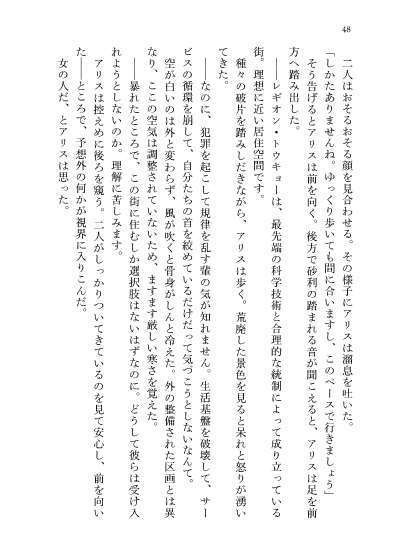 48
二人はおそるおそる顔を見合わせる。その様子にアリスは溜息を吐いた。
「しかたありませんね。ゆっくり歩いても間に合いますし、このペースで行きましょう」
そう告げるとアリスは前を向く。後方で砂利の踏まれる音が聞こえると、アリスは足を前
方へ踏み出した。
――レギオン・トウキョーは、最先端の科学技術と合理的な統制によって成り立っている
街。理想に近い居住空間です。
種々の破片を踏みしだきながら、アリスは歩く。荒廃した景色を見ると呆れと怒りが湧い
てきた。
――なのに、犯罪を起こして規律を乱す輩の気が知れません。生活基盤を破壊して、サー
ビスの循環を崩して、自分たちの首を絞めているだけだって気づこうとしないなんて。
空が白いのは外と変わらず、風が吹くと骨身がしんと冷えた。外の整備された区画とは異
なり、ここの空気は調整されていないため、ますます厳しい寒さを覚えた。
――暴れたところで、この街に住むしか選択肢はないはずなのに。どうして彼らは受け入
れようとしないのか。理解に苦しみます。
アリスは控えめに後ろを窺う。二人がしっかりついてきているのを見て安心し、前を向い
た――ところで、予想外の何かが視界に入りこんだ。
女の人だ、とアリスは思った。